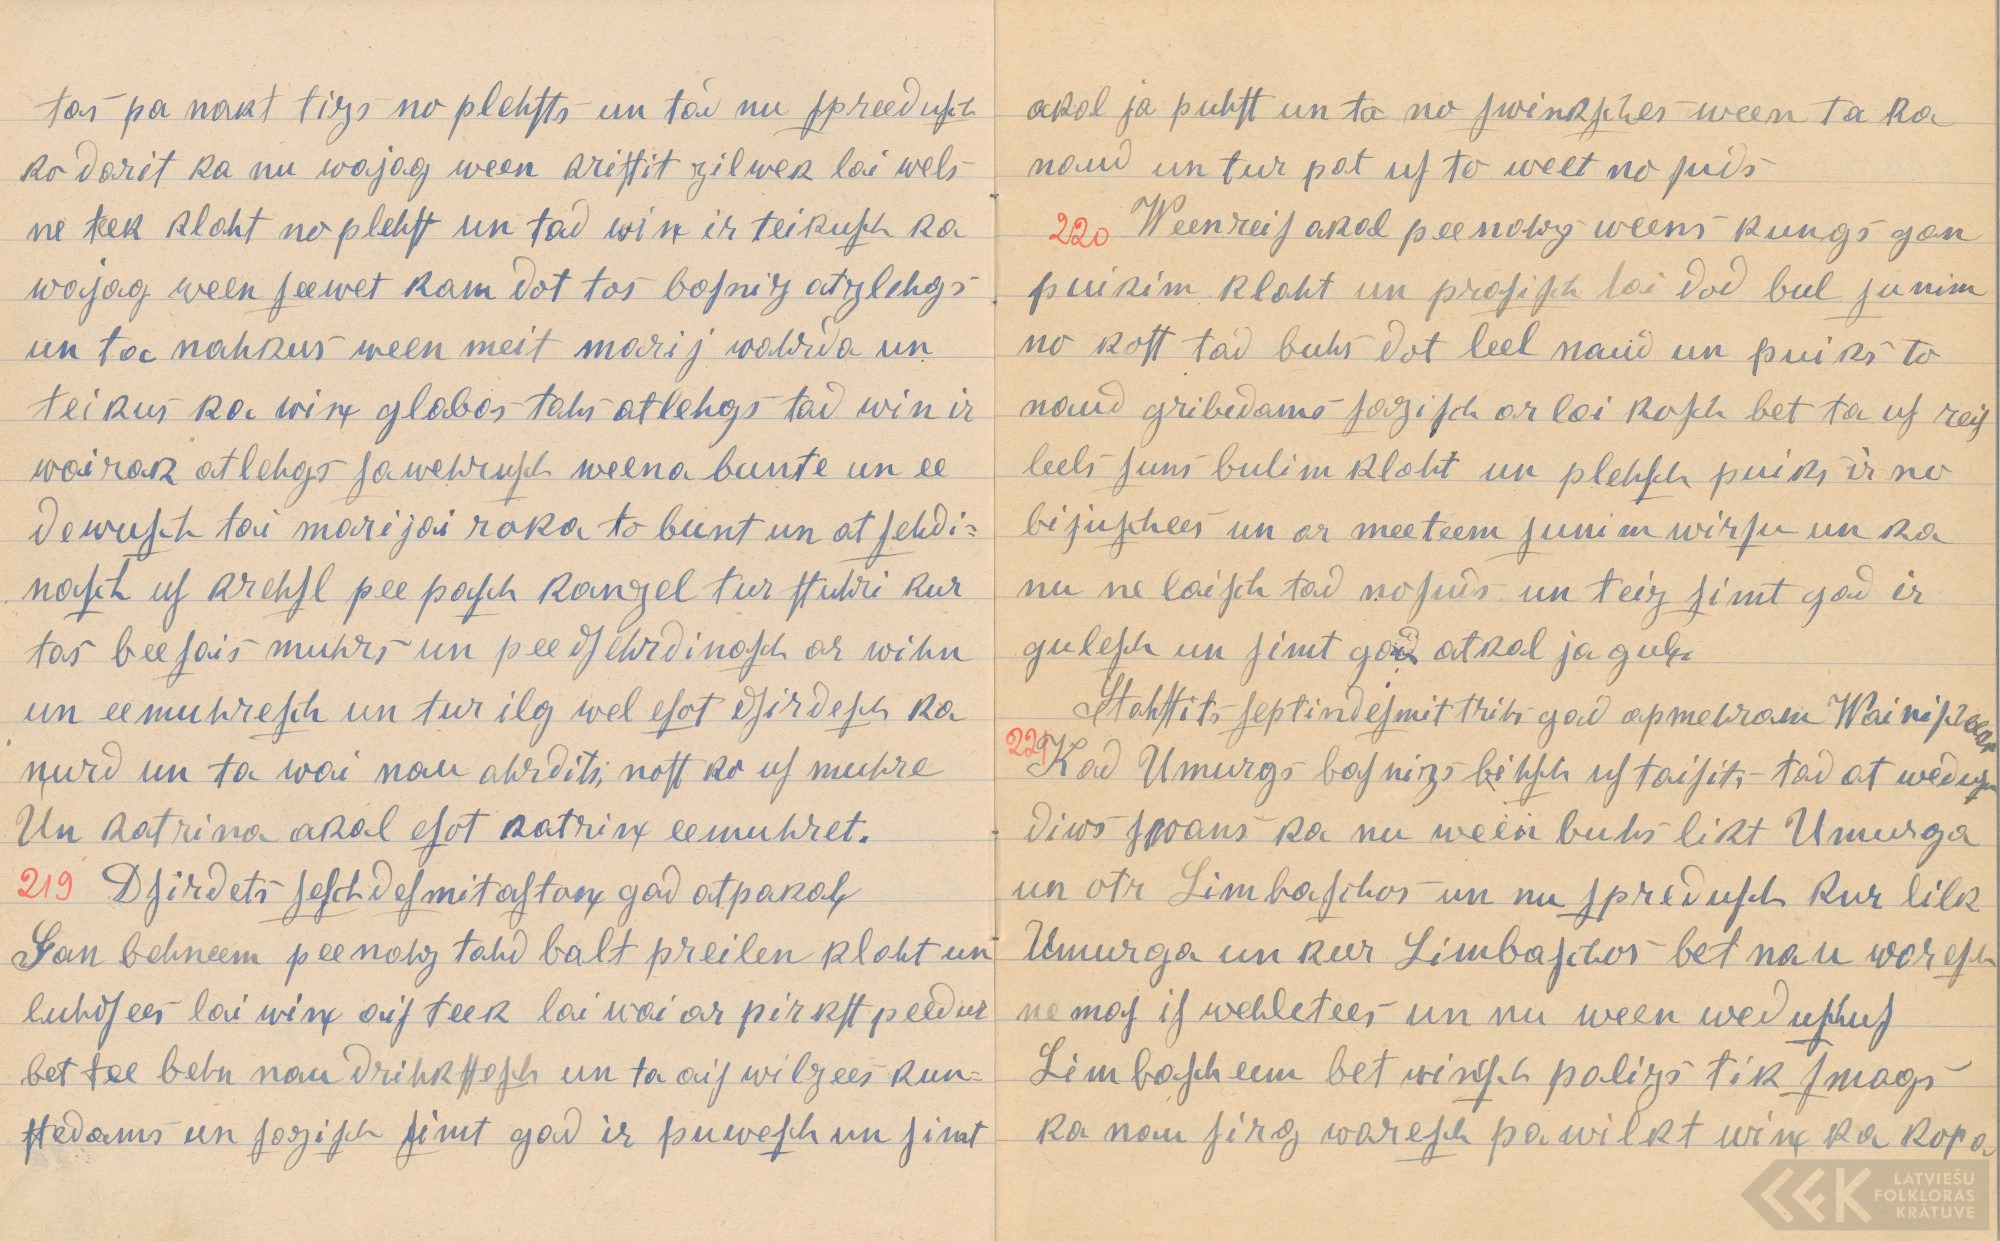 tas pa nakt tizs no plehſts un tad nu ſpreeduſch
ko darit ka nu wajag ween kriſtit zilwek lai wels
ne teek klaht no plehſt un tad winx ir teikuſch ka
wajag ween ſeewet kam dot tos baſniz atzlehgs
un ta nahkus ween meit marij wahrda un
teikus ka winx glabos tahs atlehgs tad win ir
wairak atlehgs ſawehruſch weena bunte un ee
dewuſch tai marijai roka to bunt un at ſehdi=
naſch uſ krehſl pee paſch kanzel tur ſtuhri kur
tas beeſais muhrs un peedſehrdinaſch ar wihn
un eemuhreſch un tur ilg wel eſot dſirdeſch ka
nxurd un ta wai nau ahrdits, noſt ko uſ muhre
Un katrina akal eſot katrinx eemuhret.
219 Dſirdets ſeſchdeſmit aſtonx gad atpakalx
Gan behneem pee nahz tahd balt preilen klaht un
luhdſees lai winx aiſ teek lai wai ar pirkſt peedur
bet tee behn nau drihkſteſch un ta aiſ wilzees kun=
ſtedams un ſaziſch ſimt gad ir puweſch un ſimt
akal ja puhſt un ta no ſwinkſches ween ta ka
naud un tur pat uſ to weet no ſuds
220 Weenreiſ akal pee nahzs weens kungs gan
puikim klaht un praſiſch lai dod bul ſunim
no koſt tad buhs dot leel naud un puiks to
naud gribedams ſaziſch ar lai koſch bet ta uſ reiſ
leels ſuns bulim klaht un plehſch puiks ir no
bijuſchees un ar meeteem ſunim wirſu un ka
nu ne laiſch tad noſuds un teiz ſimt gad ir
guleſch un ſimt gad atkal ja gulx
Stahſtits ſeptindeſmit trihs gad apmehram
221 Kad Umurgs baſnizs bihſch uſ taiſits tad at weduſch
diws ſwans ka nu ween buhs likt Umurga
un otr Limbaſchos un nu ſpreduſch kur lilk
Umurga un kur Limbaſchos bet nau wareſch
ne maſ iſ wehletees un nu ween weduſchuſ
Limbaſcheem bet winſch palizs tik ſmags
ka nau ſirg wareſch pa wilkt winx ka kopa
LATVIEŠU
FOLKLORAS
KRĀTUVE